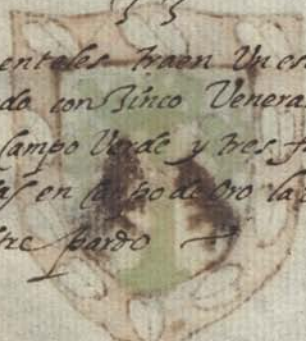 enteles traen Un es
do con Zinco Venera
Campo Verde y tres f
as en Campo de Oro la
tre pardo